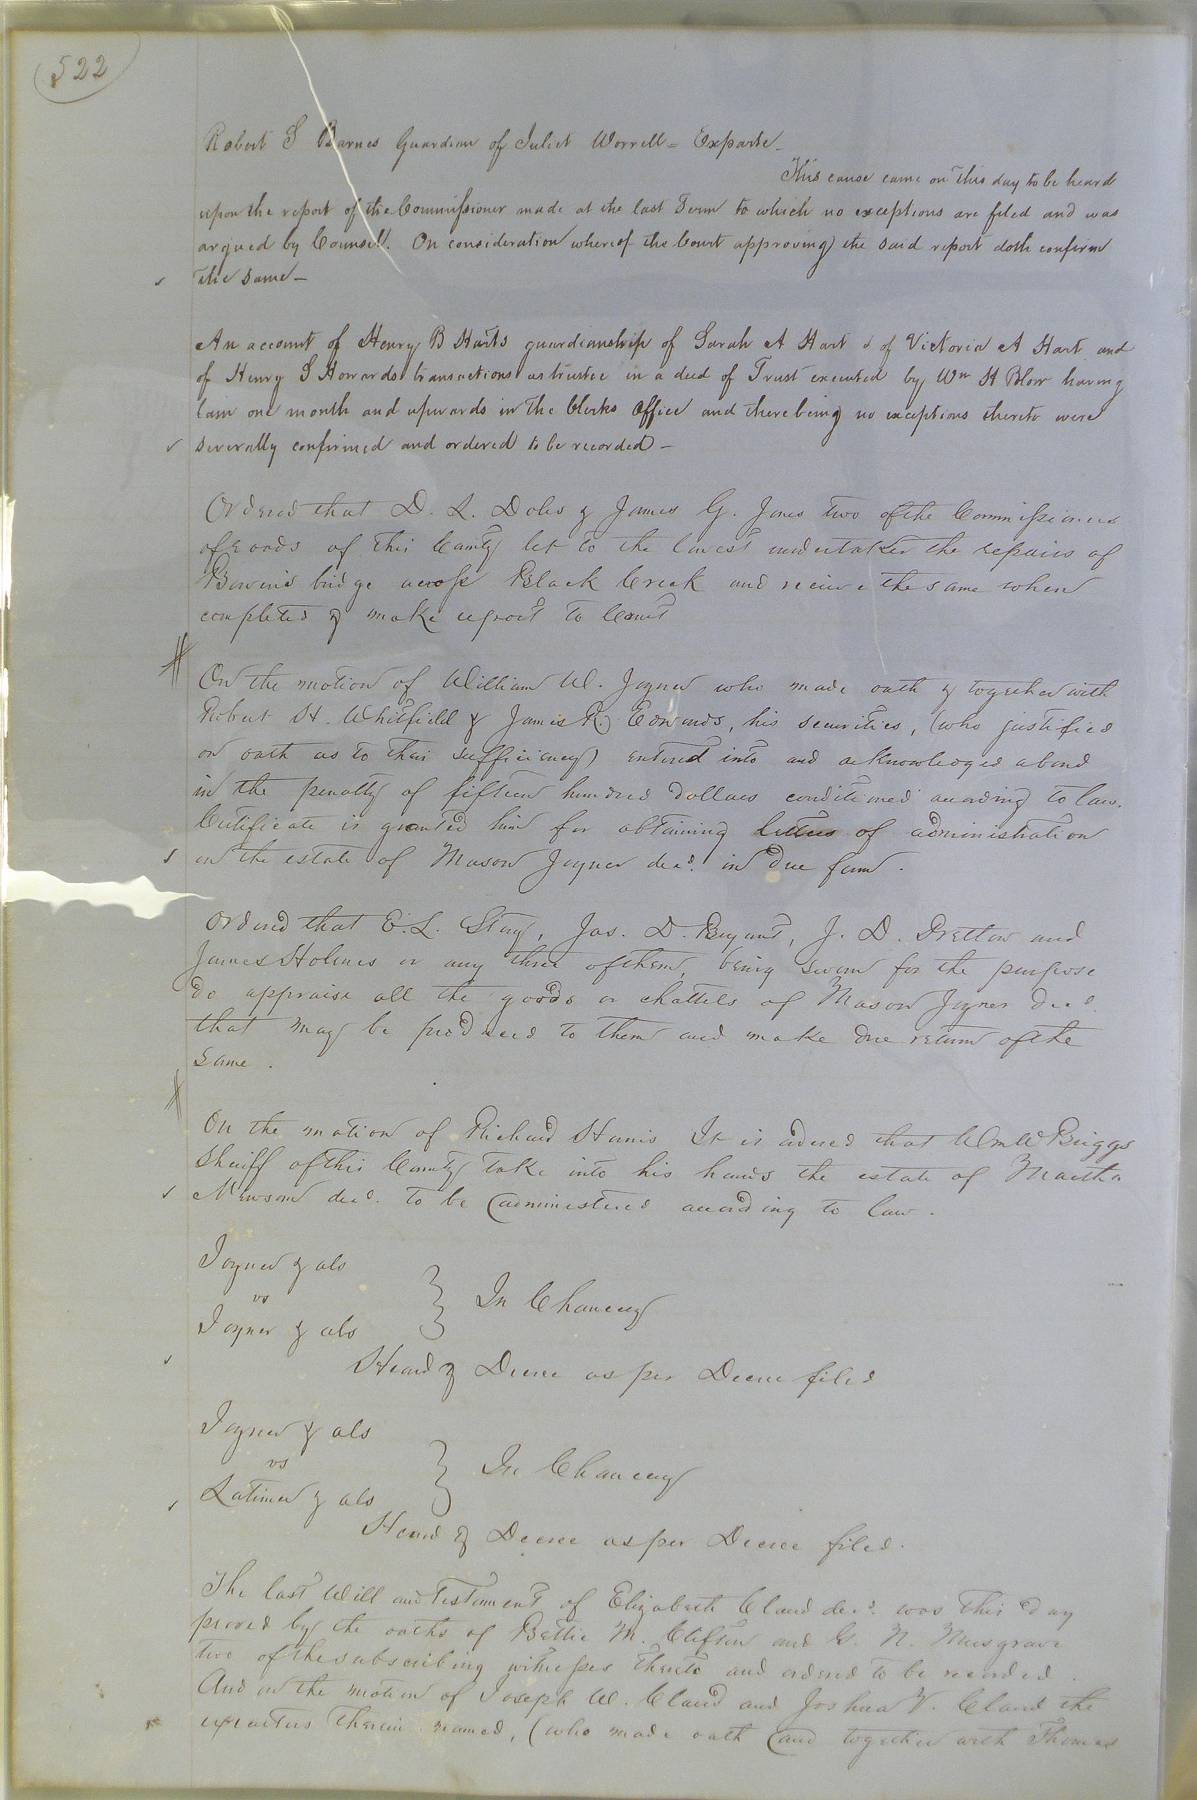 522
Robert S Barnes Guardian of Juliet Worrell = Exparte
This cause came on this day to be heard
upon the report of the Commissioner made at the last Term to which no exceptions are filed and was
argued by Counsell. On consideration whereof the Court approving the said report doth confirm
the same —
An account of Henry B Harts guardianship of Sarah A Hart & of Victoria A Hart and
of Henry S Howards transactions as trustee in a deed of Trust executed by Wm H Blow having
lain one month and upwards in the Clerks Office and there being no exceptions thereto were
severally confirmed and ordered to be recorded —
Ordered that D. L. Doles & James G. Jones two of the Commissioners
of roads of this County let to the lowest undertaker the repairs of
Bowins bridge across Black Creek and receive the same when
completed & make report to Court
On the motion of William W. Joyner who made oath & together with
Robert H. Whitfield & James R Edwards, his securities, (who justified
on oath as to their sufficiency) entered into and acknowledged a bond
in the penalty of fifteen hundred dollars conditioned according to law.
Certificate is granted him for obtaining letters of administration
on the estate of Mason Joyner decd. in due form.
Ordered that E. L. Jas. D. Bryant, J. D. Pretlow and
James Holmes or any three of them, being sworn for the purpose
do appraise all the goods or chattels of Mason Joyner decd.
that may be produced to them and make due return of the
same.
On the motion of Richard Harris It is ordered that Wm W Briggs
Sheriff of this County take into his hands the estate of Martha
Newsom decd. to be administered according to law.
Joyner & als
vs
Joyner & als
} In Chancery
Heard & Decree as per Decree filed
Joyner & als
vs
Latimer & als
} In Chancery
Heard & Decree as per Decree filed.
The last Will and Testament of Elizabeth Claud decd. was this day
proved by the oaths of Bettie M. Clifton and G. N. Musgrave
two of the subscribing witnesses thereto and ordered to be recorded.
And on the motion of Joseph W. Claud and Joshua V. Claud the
executors therein named, (who made oath and together with Thomas